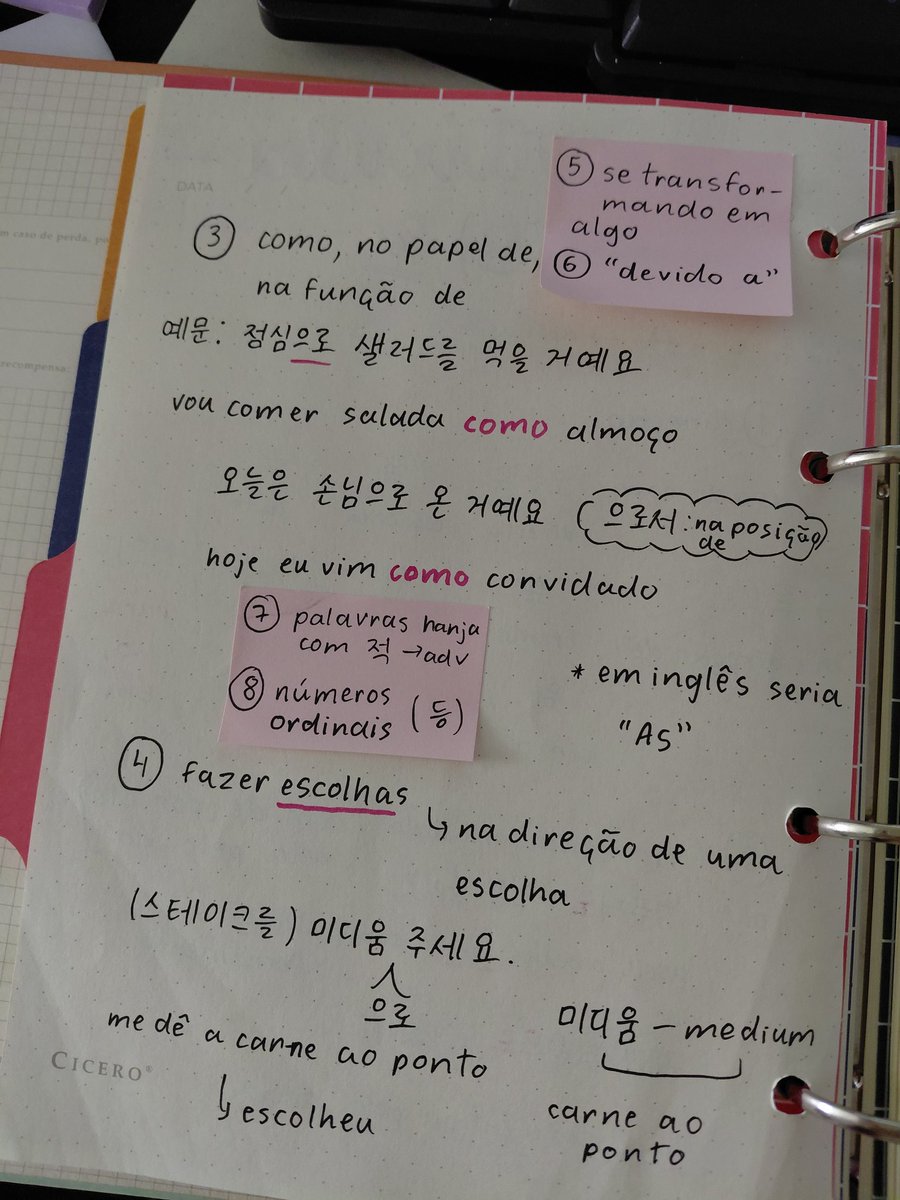 DATA / /
m caso de perda, po
recompensa:
⑤ se transfor-
mando em
algo
⑥ "devido a"
③ como, no papel de,
na função de
예문: 점심으로 샐러드를 먹을 거예요
vou comer salada como almoço
오늘은 손님으로 온 거예요
으로서: na posição
de
hoje eu vim como convidado
⑦ palavras hanja
com 적 → adv
⑧ números
ordinais (등)
* em inglês seria
"As"
④ fazer escolhas
↳ na direção de uma
escolha
(스테이크를) 미디움 주세요.
으로
me dê a carne ao ponto
↳ escolheu
미디움 - medium
carne ao
ponto
CICERO®